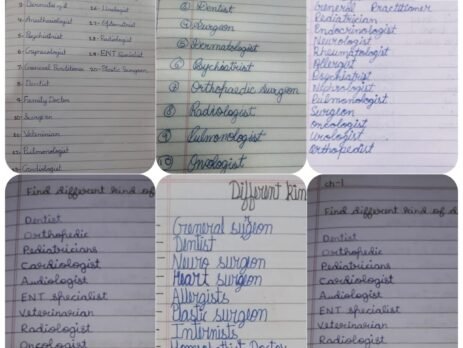 2- Dermatologist
3- Anesthesiologist
4- Psychiatrist
5- Gynecologist
6- General Practitioner
8- Dentist
9- Family Doctor
10- Surgeon
11- Veterinarian
12- Pulmonologist
13- Cardiologist
16- Urologist
17-
18- Radiologist
19- ENT Specialist
20- Plastic Surgeon
③ Dentist
④ Surgeon
⑤ Dermatologist
⑥ Psychiatrist
⑦ Orthopaedic Surgeon
⑧ Radiologist
⑨ Pulmonologist
⑩ Oncologist
General Practitioner
Pediatrician
Endocrinologist
Neurologist
Rheumatologist
Allergist
Psychiatrist
Nephrologist
Pulmonologist
Surgeon
oncologist
Urologist
Orthopedist
Find different kind of
Dentist
Orthopedic
Pediatricians
Cardiologist
Audiologist
ENT specialist
Veterinarian
Radiologist
Oncologist
Different kin
- General sugeon
- Dentist
- Neuro surgeon
- Heart surgeon
- Allergists
- Plastic surgeon
- Internists
ch-1
Find different kind of d
Dentist
Orthopedic
Pediatricians
Cardiologist
Audiologist
ENT specialist
Veterinarian
Radiologist